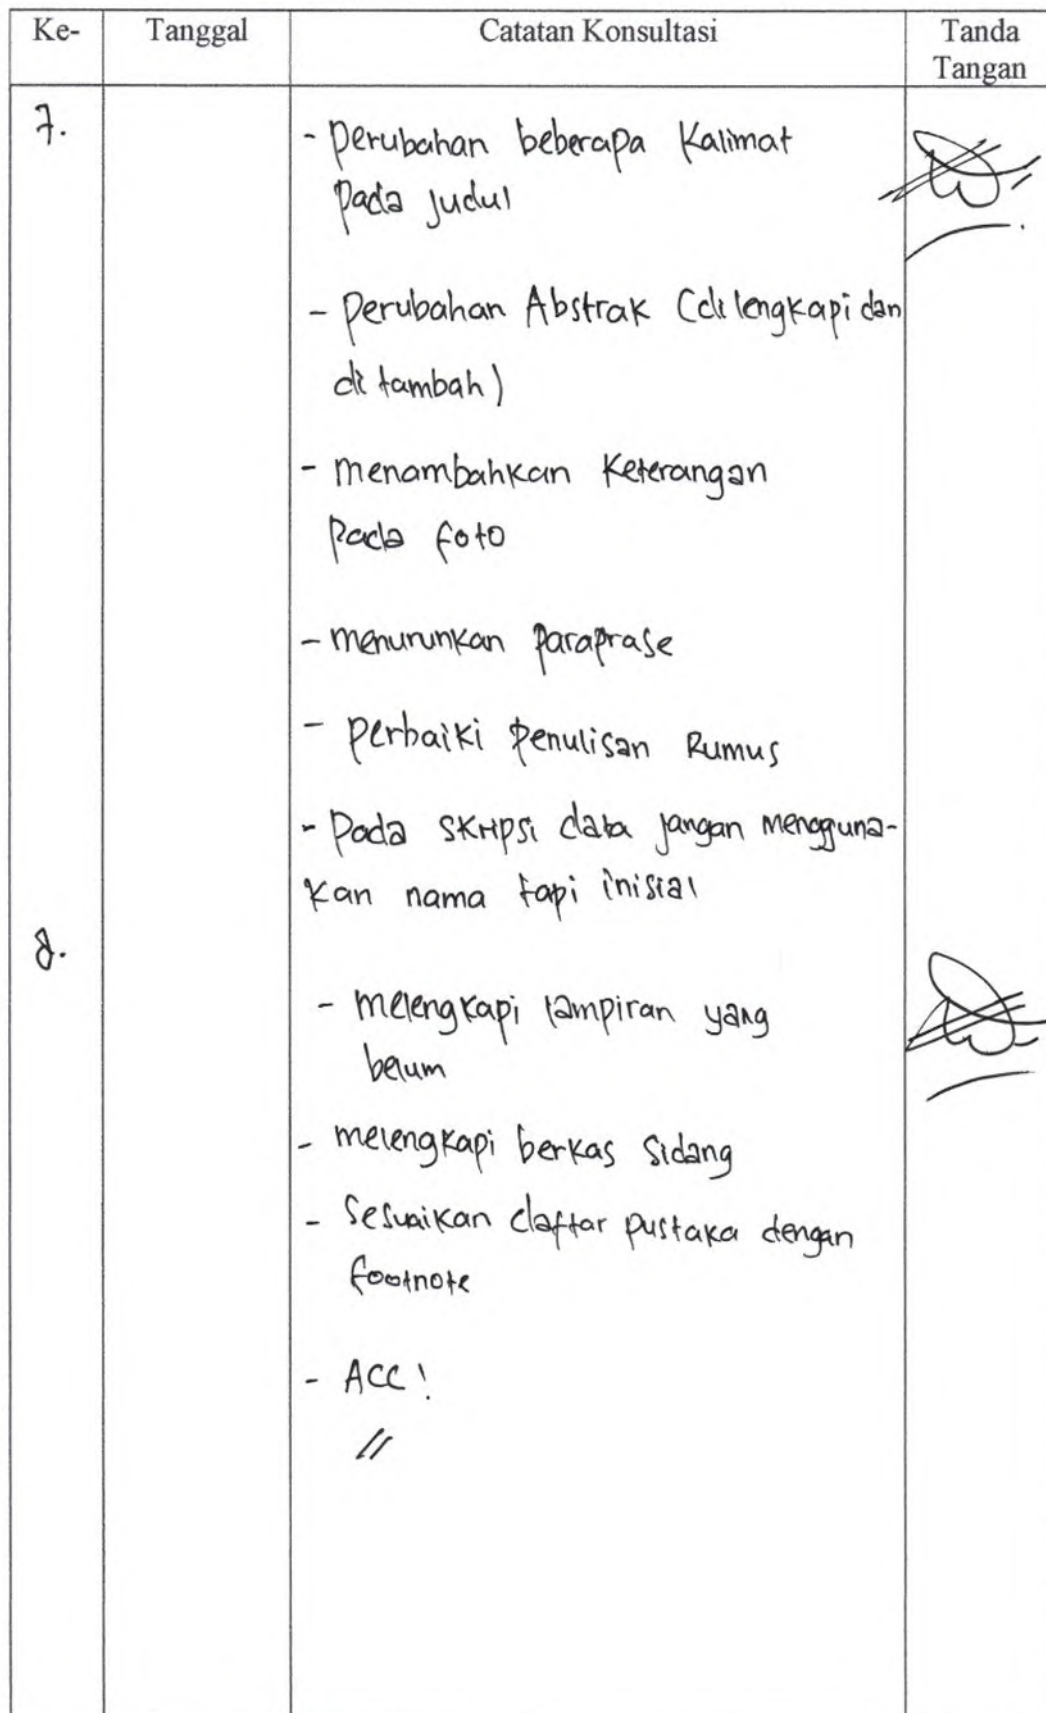 Ke- Tanggal Catatan Konsultasi Tanda
Tangan
7. - perubahan beberapa kalimat
pada judul
- perubahan Abstrak (dilengkapi dan
di tambah)
- menambahkan keterangan
pada foto
- menurunkan paraprase
- perbaiki penulisan Rumus
- pada skripsi data jangan mengguna-
kan nama tapi inisial
8.
- melengkapi lampiran yang
belum
- melengkapi berkas sidang
- Sesuaikan daftar pustaka dengan
footnote
- ACC!
//